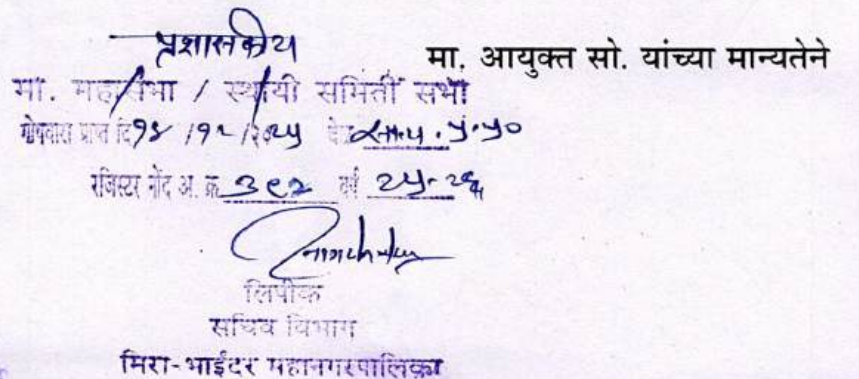 प्रशासकीय
मा. आयुक्त सो. यांच्या मान्यतेने
मा. महासभा / स्थायी समिती सभा
गोषवारा प्राप्त दि १५ /१२ /२०२५ वेळ सायं. ५.५०
रजिस्टर नोंद अ. क्र ३९२ वर्ष २५-२६
लिपीक
सचिव विभाग
मिरा-भाईंदर महानगरपालिका